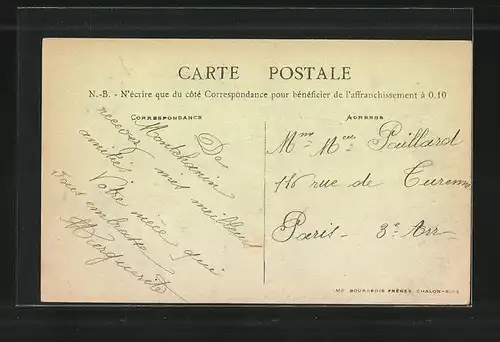 CARTE POSTALE
N.-B. - N'écrire que du côté Correspondance pour bénéficier de l'affranchissement à 0.10
CORRESPONDANCE
De
recevez mes meilleures
amitiés
Votre nièce qui
vous embrasse
Marguerite
ADRESSE
Mme
116 rue de Turenne
Paris - 3e Arr
BOURGEOIS FRÈRES, CHALON-S/-S